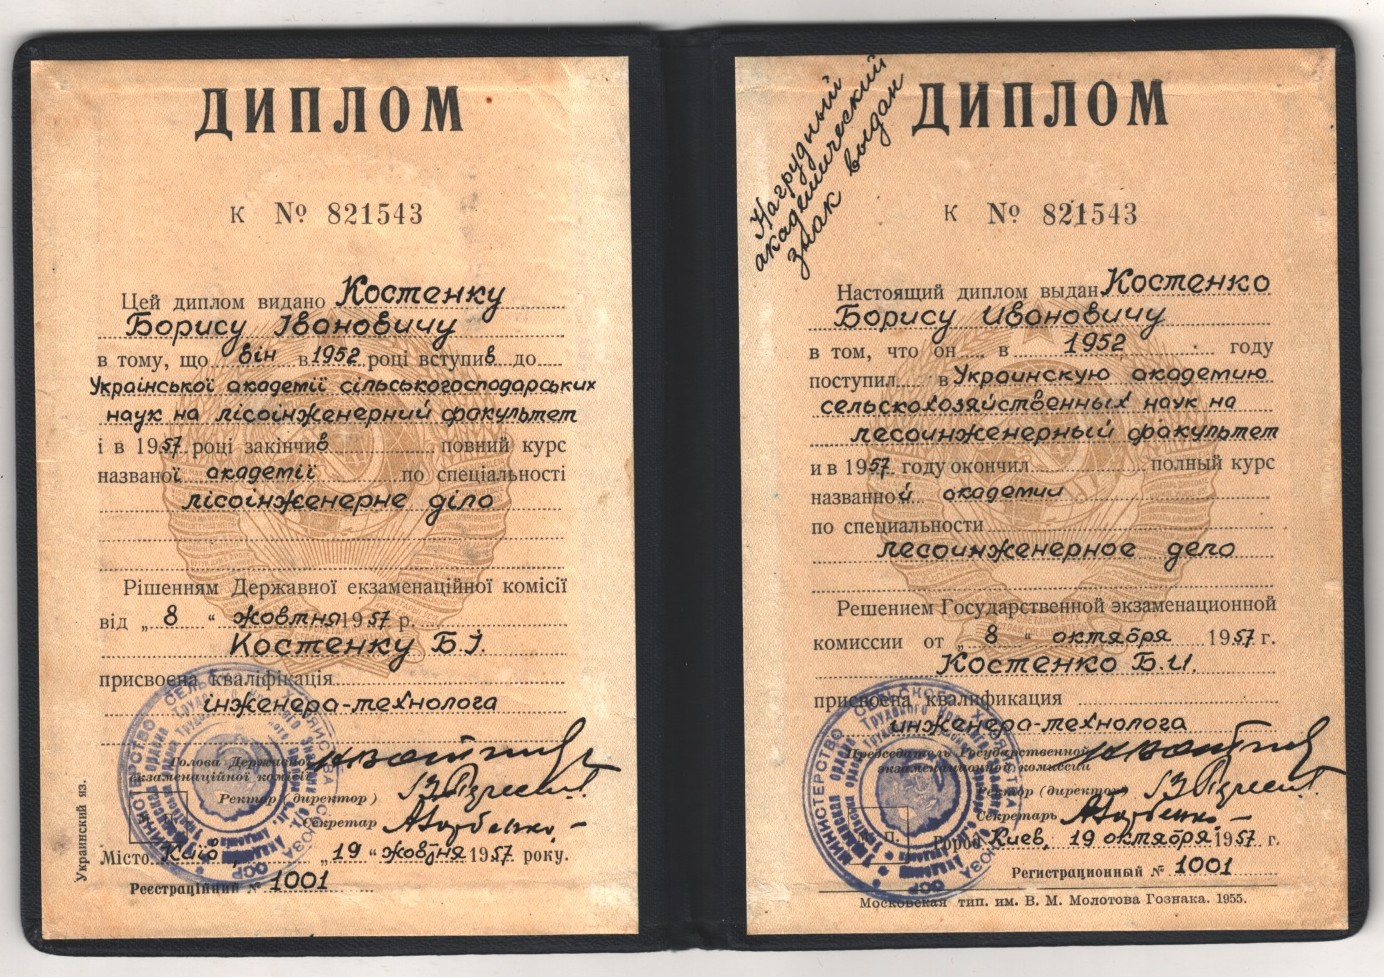 ДИПЛОМ
К № 821543
Цей диплом видано Костенку
Борису Івановичу
в тому, що він в 1952 році вступив до
Української академії сільськогосподарських
наук на лісоінженерний факультет
і в 1957 році закінчив повний курс
названої академії по спеціальності
лісоінженерне діло
Рішенням Державної екзаменаційної комісії
від „ 8 “ жовтня 1957 р.
Костенку Б.І.
присвоєна кваліфікація
інженера-технолога
Голова Державної
екзаменаційної комісії
Ректор (директор)
Секретар
Місто Київ, „ 19 “ жовтня 1957 року.
Реєстраційний № 1001
Украинский яз.
Нагрудный
академический
знак выдан
ДИПЛОМ
К № 821543
Настоящий диплом выдан Костенко
Борису Ивановичу
в том, что он в 1952 году
поступил в Украинскую академию
сельскохозяйственных наук на
лесоинженерный факультет
и в 1957 году окончил полный курс
названной академии
по специальности
лесоинженерное дело
Решением Государственной экзаменационной
комиссии от „ 8 “ октября 1957 г.
Костенко Б.И.
присвоена квалификация
инженера-технолога
Председатель Государственной
экзаменационной комиссии
Ректор (директор)
Секретарь
Город Киев, 19 октября 1957 г.
Регистрационный № 1001
Московская тип. им. В. М. Молотова Гознака. 1955.